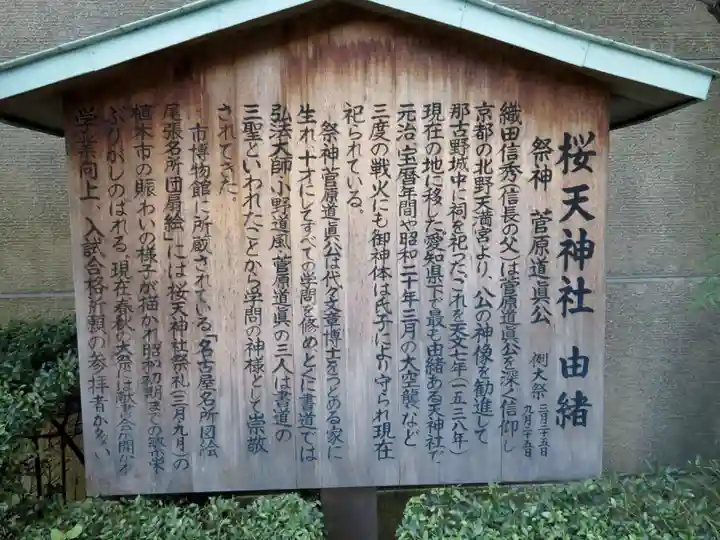 桜天神社 由緒
祭神 菅原道眞公 例大祭 三月二十五日
九月二十五日
織田信秀(信長の父)は菅原道眞公を深く信仰し
京都の北野天満宮より、公の神像を勧進して
那古野城中に祠を祀った、これを天文七年(一五三八年)
現在の地に移した。愛知県下で最も由緒ある天神社で、
元治、宝暦年間や昭和二十年三月の大空襲など
三度の戦火にも御神体は氏子により守られ現在
祀られている。
祭神菅原道眞公は代々文章博士をつとめる家に
生れ、十才にしてすべての学問を修め、とくに書道では
弘法大師、小野道風、菅原道眞の三人は書道の
三聖といわれたことから学問の神様として崇敬
されてきた。
市博物館に所蔵されている「名古屋名所団絵
尾張名所団扇絵」には桜天神社祭礼(三月九月)の
植木市の賑わいの様子が描かれ昭和初期までの繁栄
ぶりがしのばれる。現在春秋の大祭には献書会が開かれ
学業向上、入試合格祈願の参拝者が多い